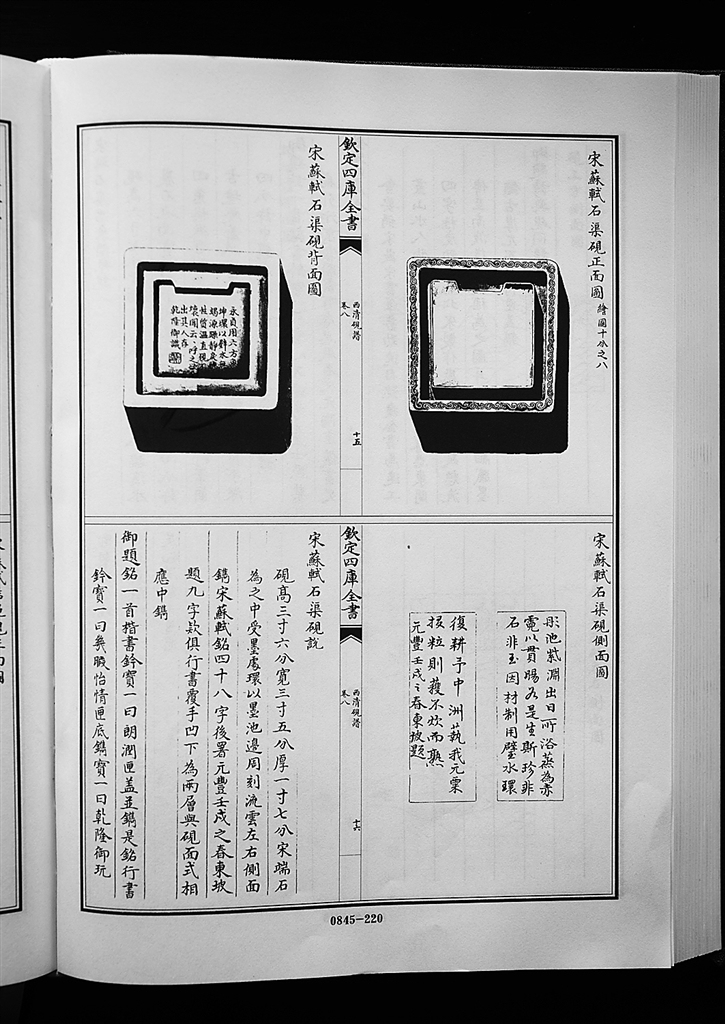 宋蘇軾石渠硯正面圖 繪圖十分之八
欽定四庫全書
西清硯譜
卷八
十五
宋蘇軾石渠硯背面圖
永貞用六方
坤環以辥水
乾隆御識
宋蘇軾石渠硯側面圖
彤池紫淵出日所浴蒸為赤
霓以貫暘谷是生斯珍非
石非玉因材制用璧水環
復耕予中洲蓺我元粟
投粒則穫不炊而熟
元豐壬戌之春東坡題
欽定四庫全書
西清硯譜
卷八
十六
宋蘇軾石渠硯說
硯高三寸六分寬三寸五分厚一寸七分宋端石
為之中受墨處環以墨池邊周刻流雲左右側面
鐫宋蘇軾銘四十八字後署元豐壬戌之春東坡
題九字欵俱行書覆手凹下為兩層與硯面式相
應中鐫
御題銘一首楷書鈐寶一曰朗潤匣蓋並鐫是銘行書
鈐寶一曰幾暇怡情匣底鐫寶一曰乾隆御玩
0845-220